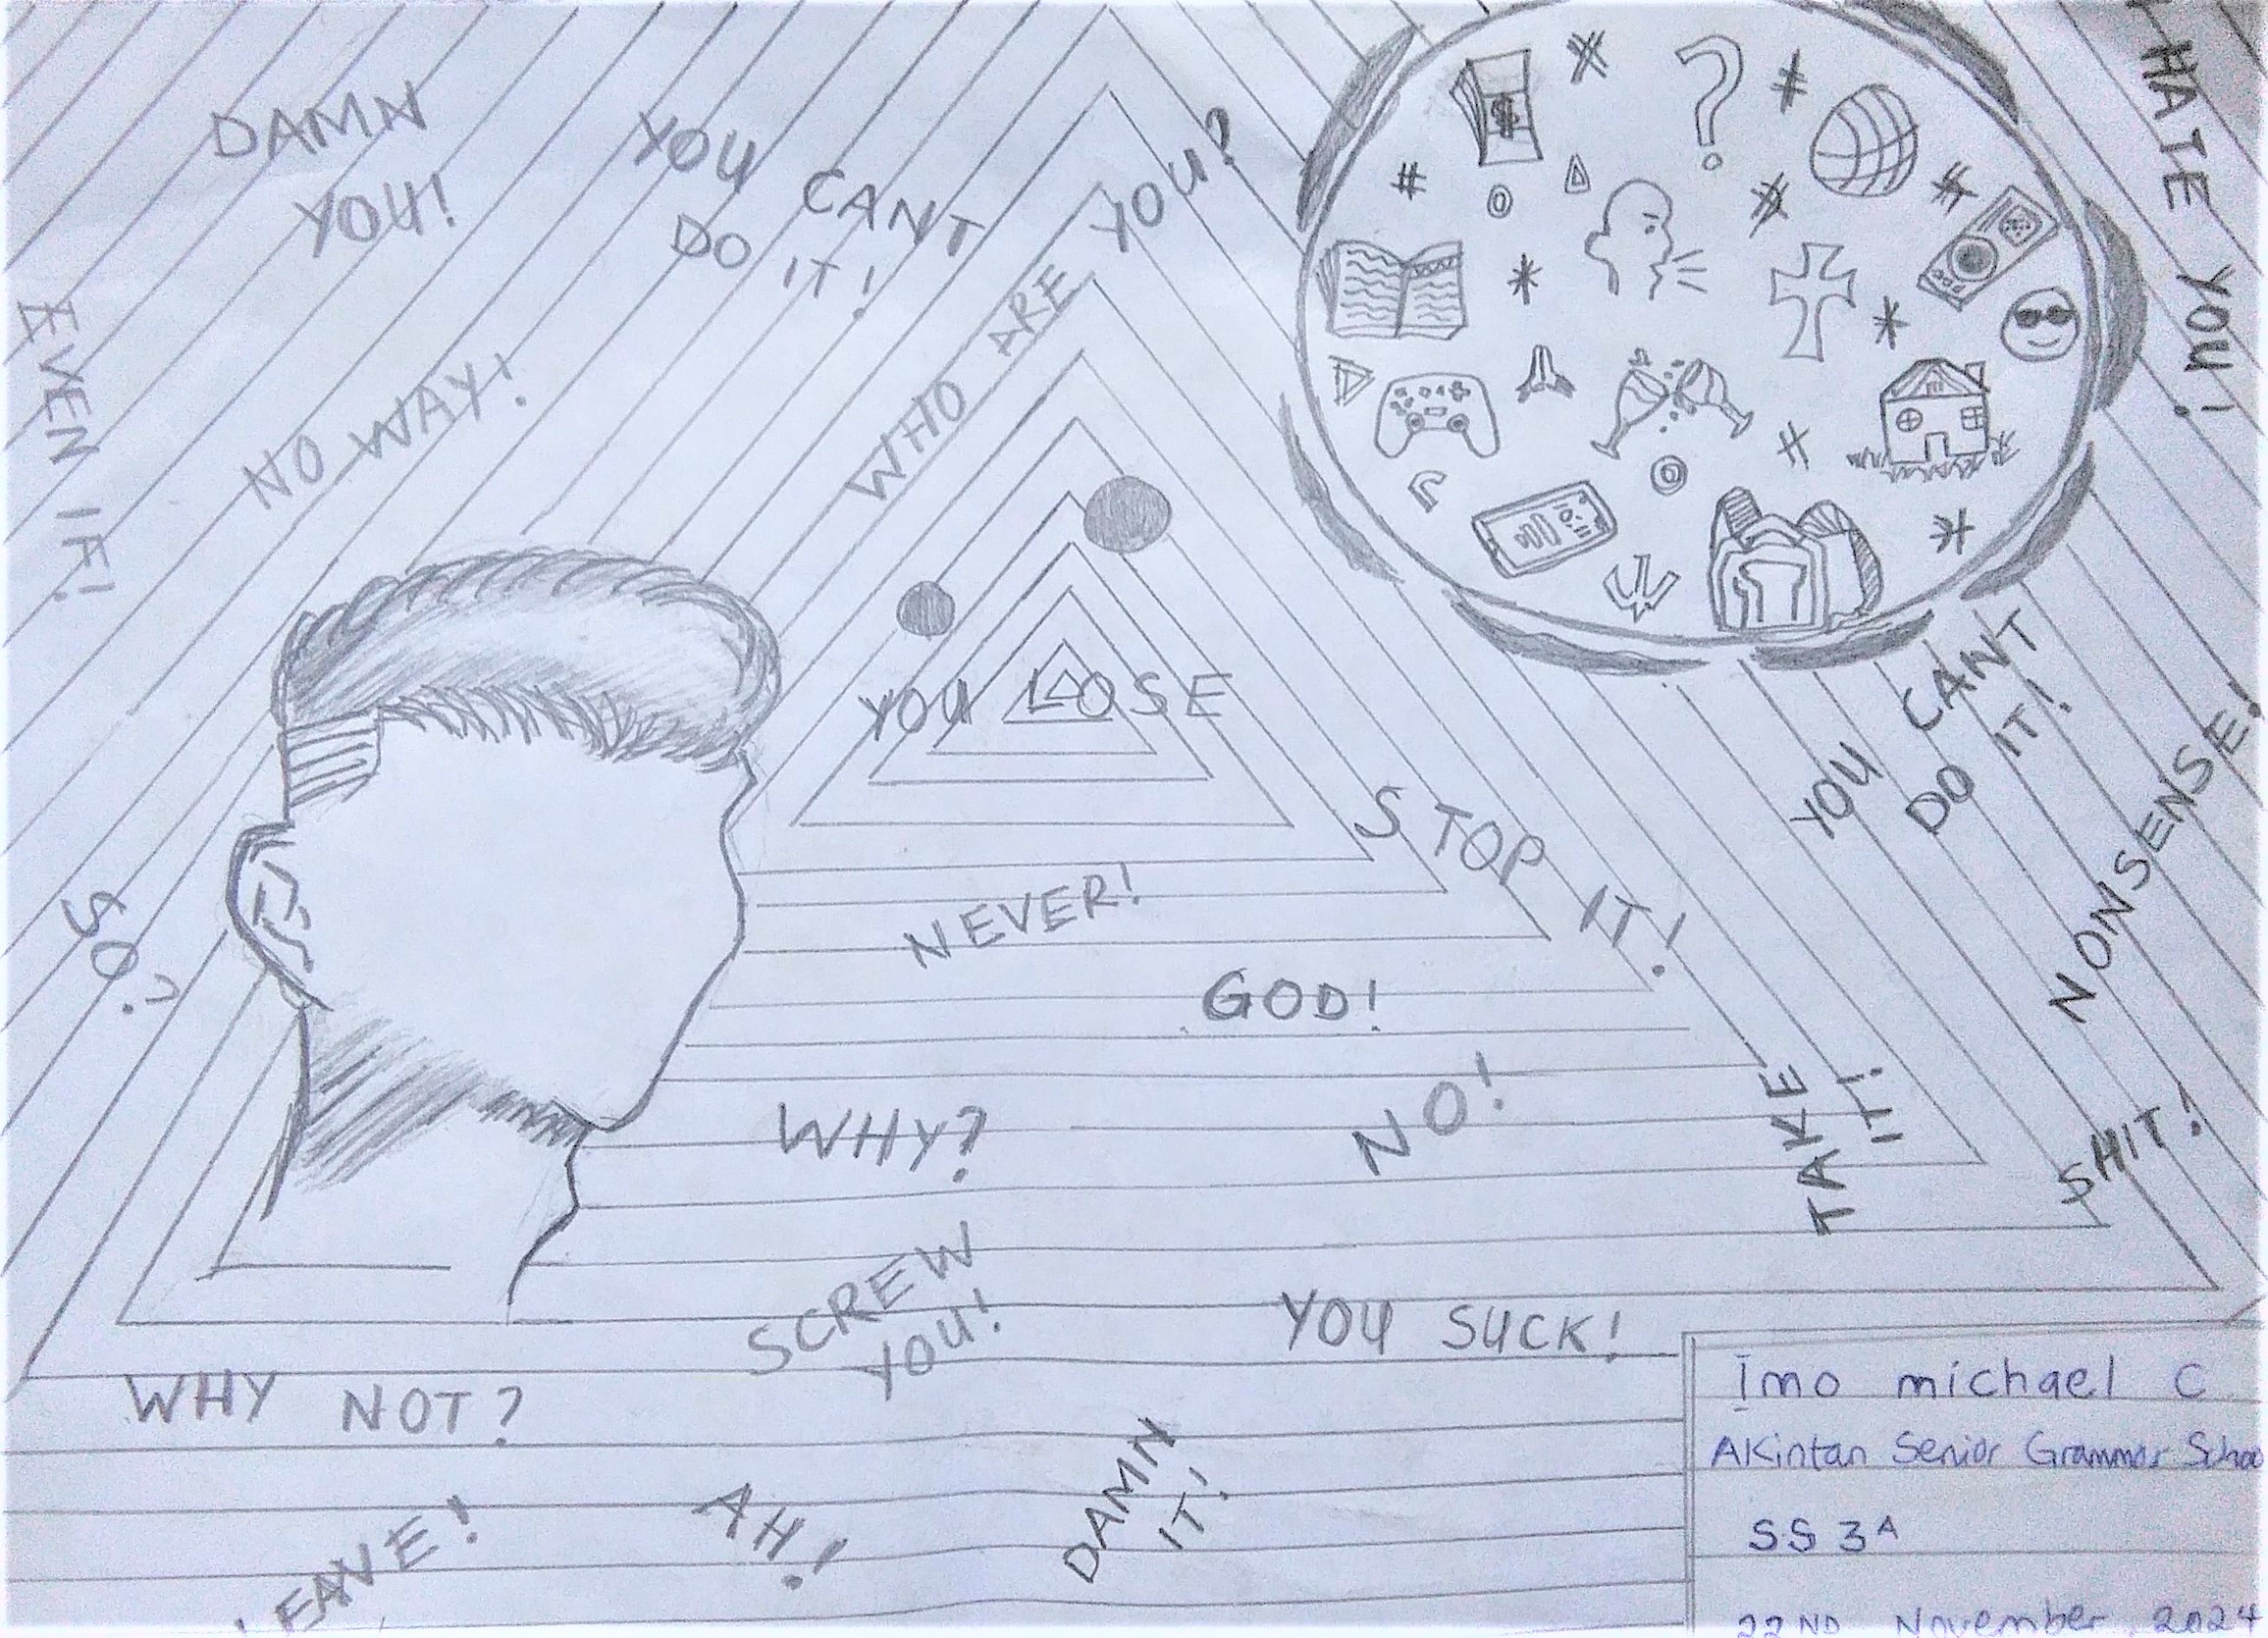 DAMN
YOU!
YOU CANT
DO IT!
WHO ARE YOU?
HATE YOU!
EVEN IF!
NO WAY!
YOU LOSE
STOP IT!
YOU CANT
DO IT!
NONSENSE!
SO?
NEVER!
GOD!
WHY?
NO!
TAKE
IT!
SHIT!
SCREW
YOU!
YOU SUCK!
WHY NOT?
LEAVE!
AH!
DAMN
IT!
Imo michael C
Akintan Senior Grammar Schoo
SS 3A
22ND November 2024